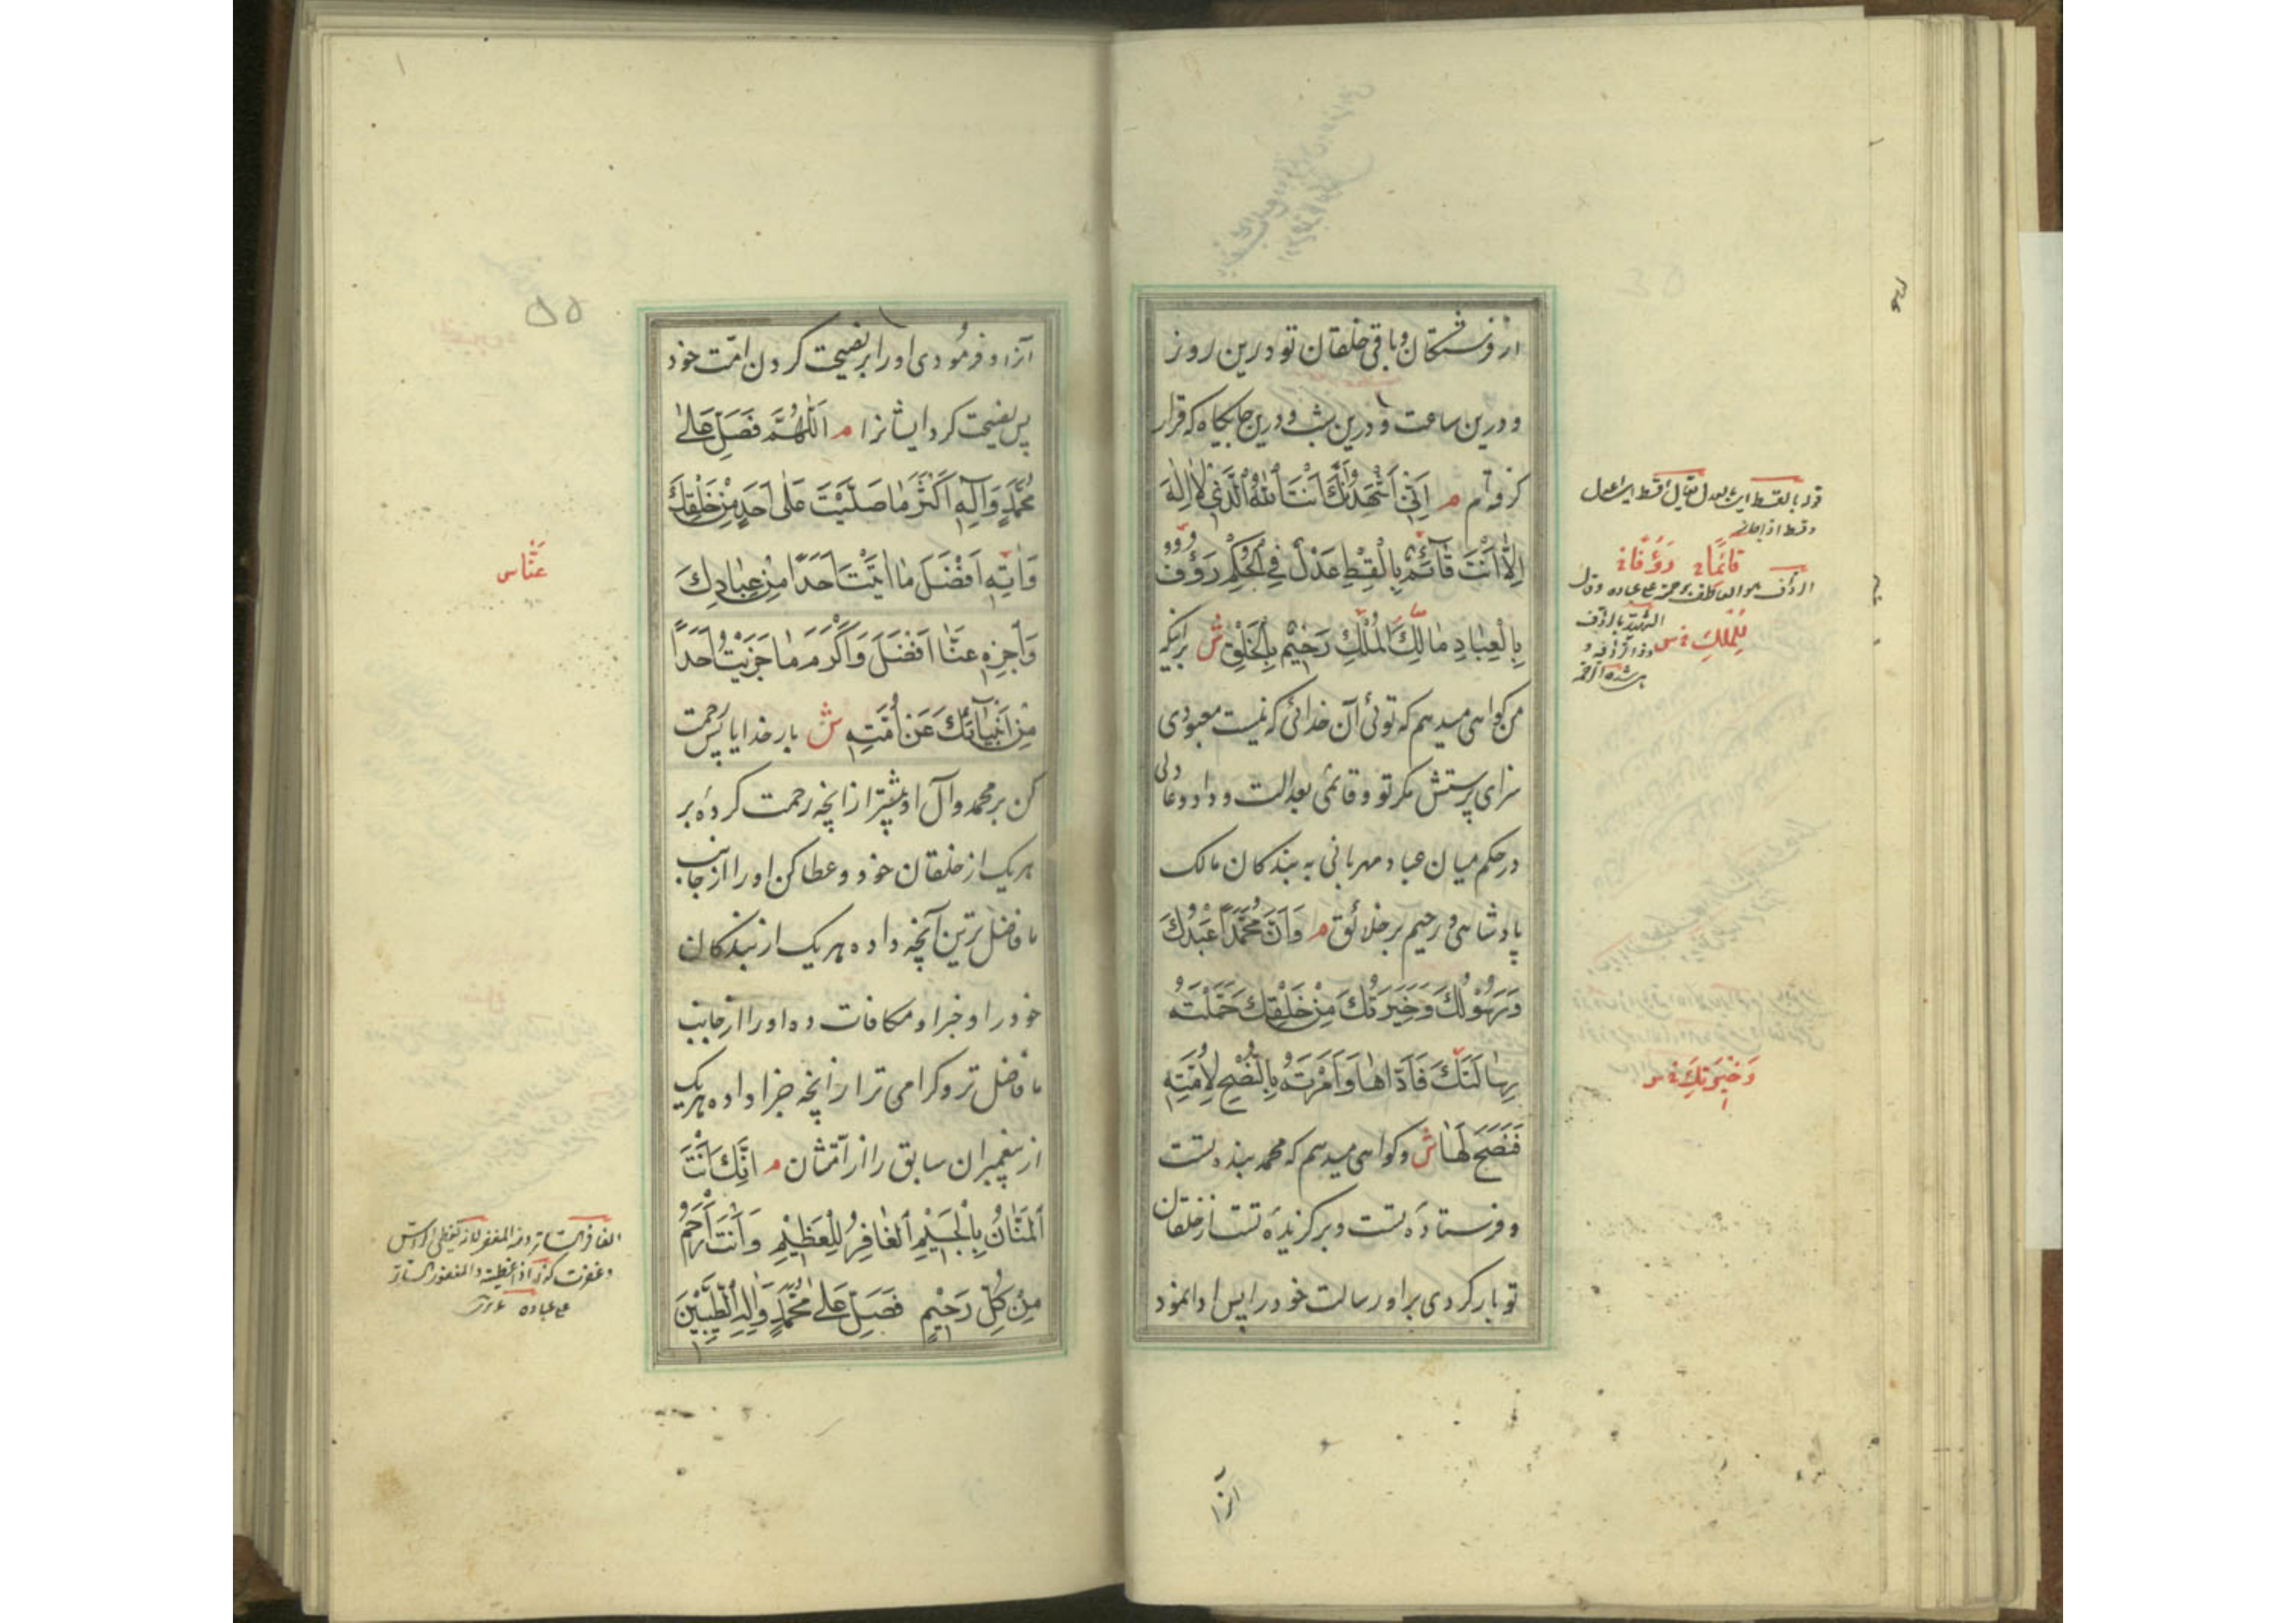 از فرشتگان و باقی خلقان تو درین روز
و درین ساعت و درین شب و درین جایگاه که قرار
گرفته‌ام م اَنّی اَشْهَدُ اَنَّكَ اَنْتَ اللهُ الَّذی لا اِلهَ
اِلاّ اَنْتَ قآئِمٌ بِالْقِسْطِ عَدْلٌ فِی الْحُكْمِ رَؤُوفٌ
بِالْعِبادِ مالِكُ الْمُلْكِ رَحیمٌ بِالْخَلْقِ ش براینکه
من گواهی میدهم که توئی آن خدائی که نیست معبودی
سزای پرستش مگر تو و قائمی بعدالت و داد و عادلی
در حکم میان عباد مهربانی به بندگان مالک
پادشاهی و رحیم بر خلائق م وَاَنَّ مُحَمَّداً عَبْدُكَ
وَرَسُولُكَ وَخِیَرَتُكَ مِنْ خَلْقِكَ حَمَّلْتَهُ
رِسالَتَكَ فَاَدّاها وَاَمَرْتَهُ بِالنُّصْحِ لِاُمَّتِهِ
فَنَصَحَ لَها ش و گواهی میدهم که محمد بنده تست
و فرستاده تست و برگزیده تست از خلقان
تو بار کردی بر او رسالت خود را پس ادا نمود
قائماً رؤفاً
لِلْمُلْكِ
وَخِیَرَتِكَ
آنرا
۵۵
آنرا و فرمودی او را بر نصیحت کردن امّت خود
پس نصیحت کرد ایشانرا م اَللّهُمَّ فَصَلِّ عَلی
مُحَمَّدٍ وَآلِهِ اَكْثَرَ ما صَلَّیْتَ عَلی اَحَدٍ مِنْ خَلْقِكَ
وَآتِهِ اَفْضَلَ ما اتَیْتَ اَحَداً مِنْ عِبادِكَ
وَاَجْزِهِ عَنّا اَفْضَلَ وَاَكْرَمَ ما جَزَیْتَ اَحَداً
مِنْ اَنْبِیآئِكَ عَنْ اُمَّتِهِ ش بار خدایا پس رحمت
کن بر محمد و آل او بیشتر از انچه رحمت کرده بر
هر یک از خلقان خود و عطا کن او را از جانب
ما فاضل‌ترین آنچه داده هر یک از بندگان
خود را و جزا و مکافات ده او را از جانب
ما فاضل‌تر و گرامی‌تر از انچه جزا داده هر یک
از پیغمبران سابق را از امّتشان م اِنَّكَ اَنْتَ
الْمَنّانُ بِالْجَسیمِ الْغافِرُ لِلْعَظیمِ وَاَنْتَ اَرْحَمُ
مِنْ كُلِّ رَحیمٍ فَصَلِّ عَلی مُحَمَّدٍ وَآلِهِ الطَّیِّبینَ
عَنّا س